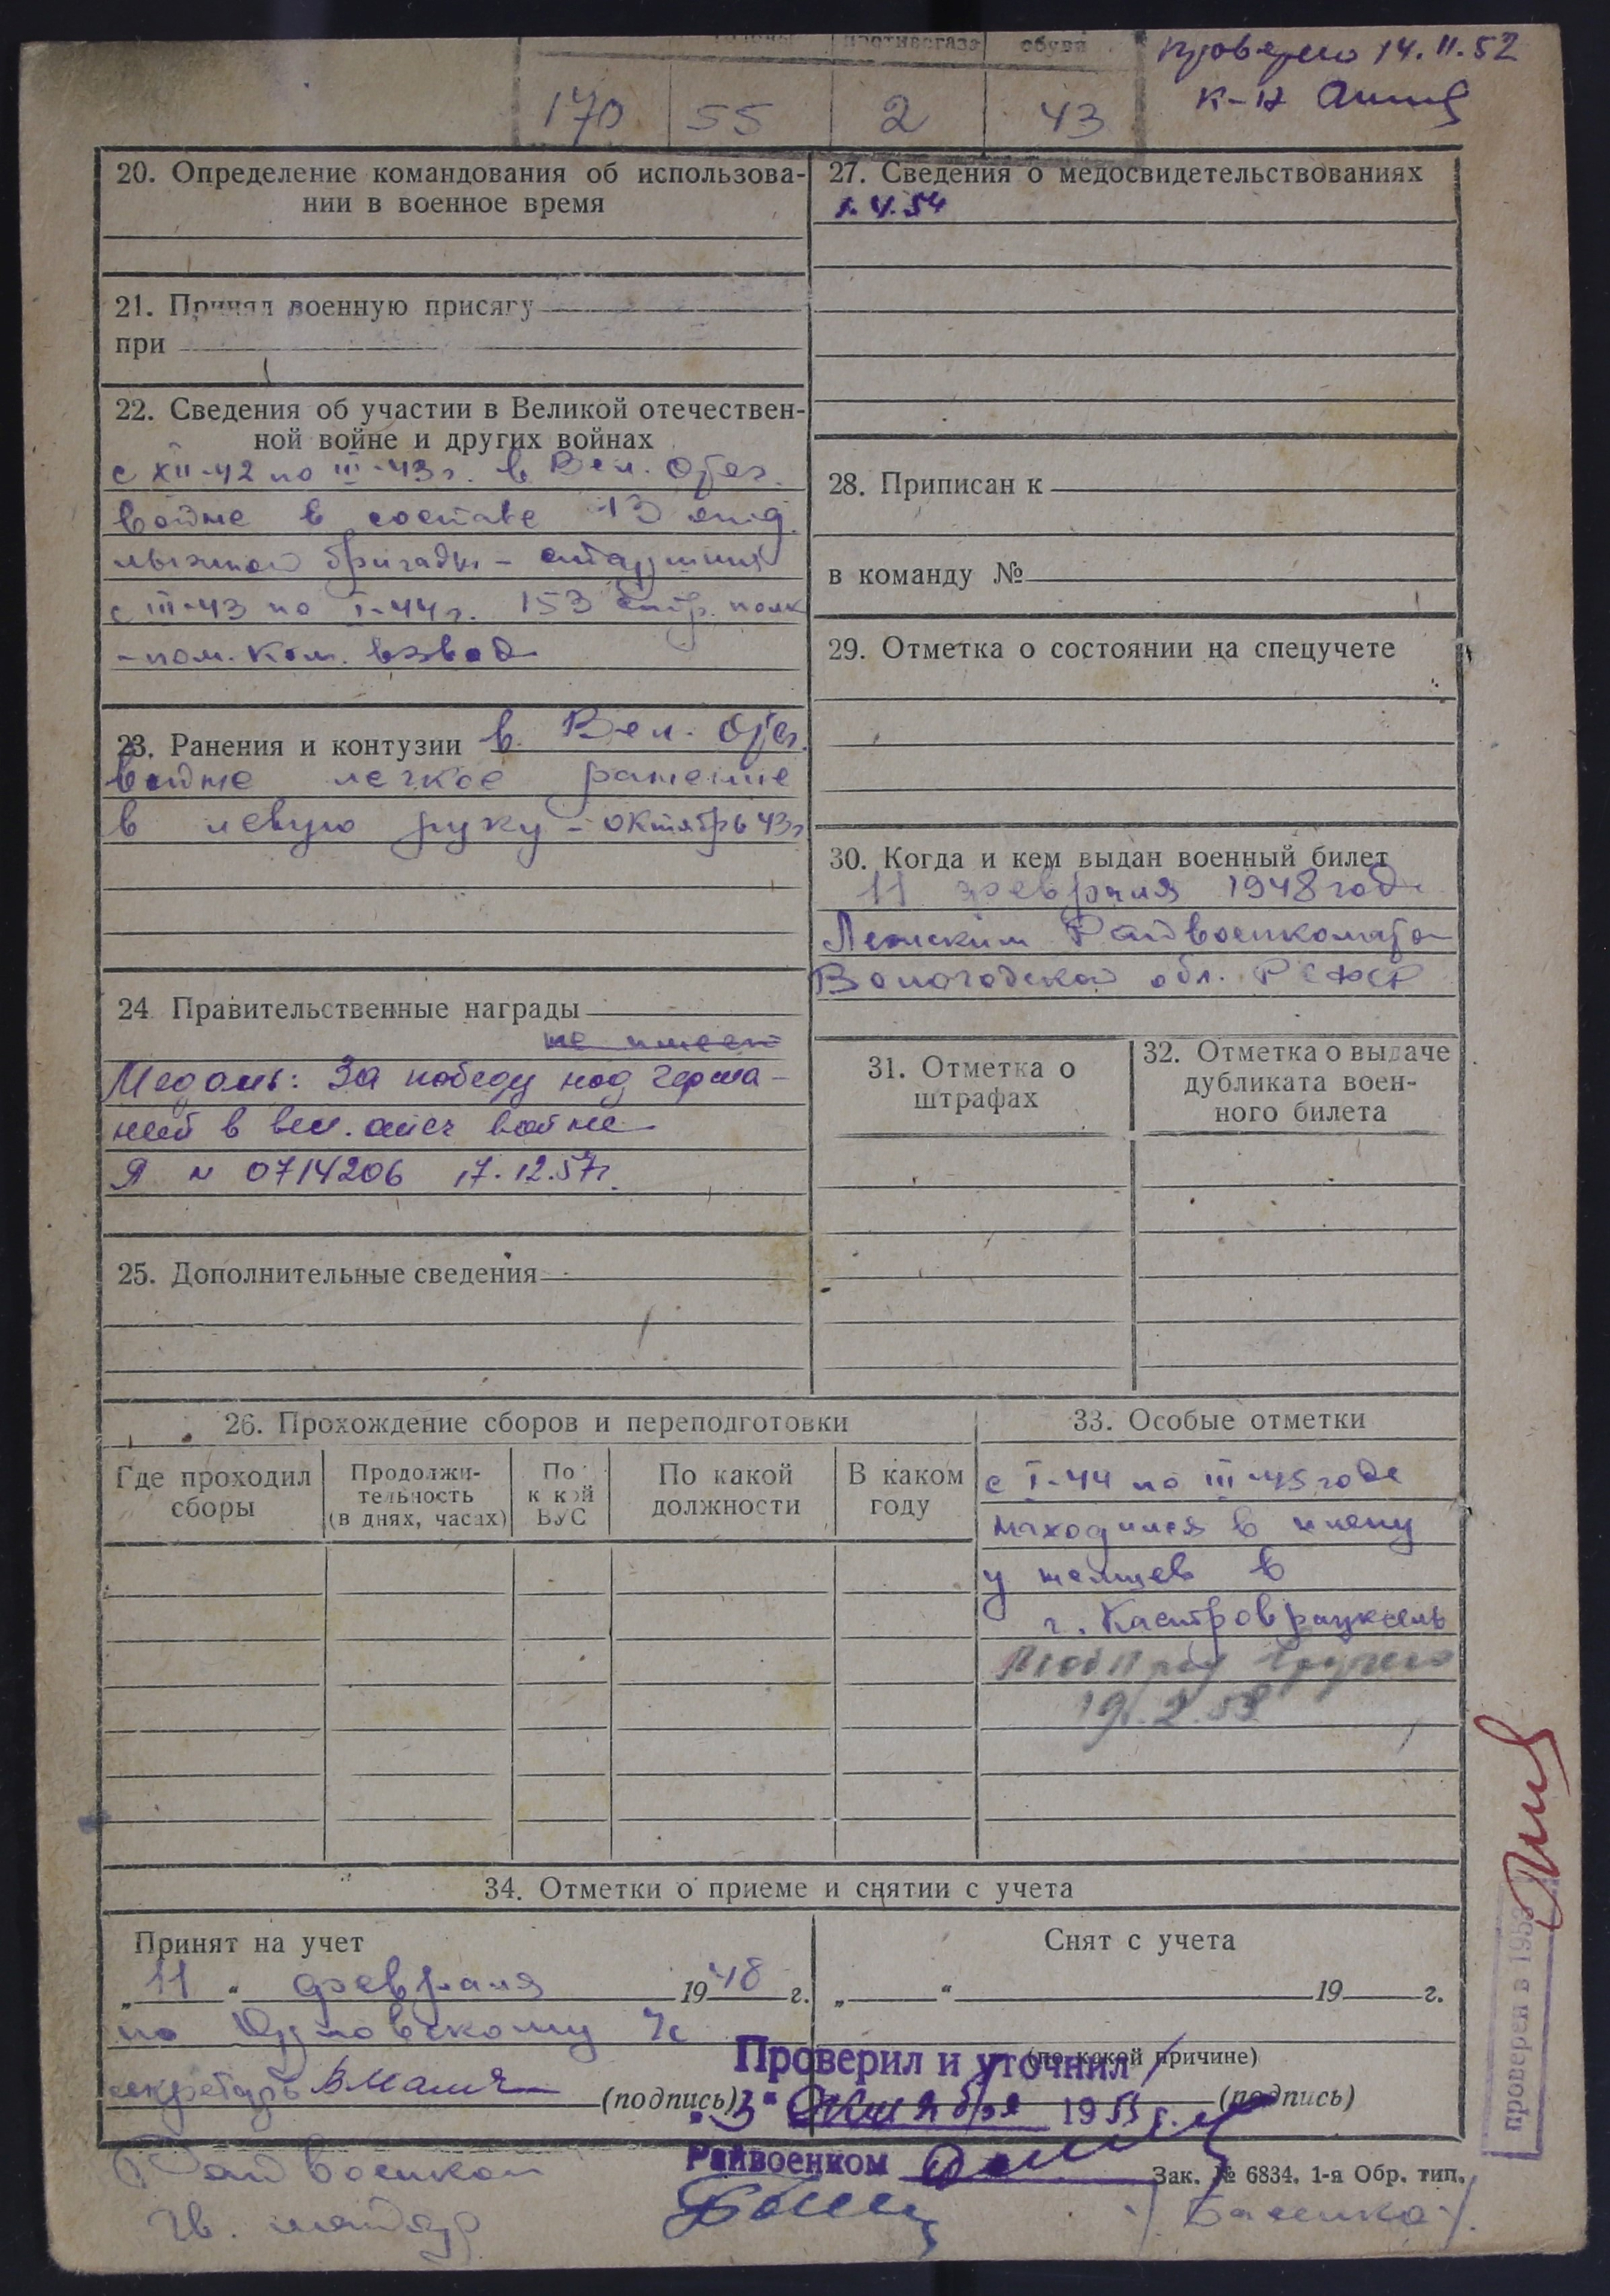 головы противогаза обуви
Проверено 14.11.52
170 55 2 43
20. Определение командования об использова-
нии в военное время
21. Принял военную присягу
при
22. Сведения об участии в Великой отечествен-
ной войне и других войнах
с XII-42 по III-43 г. в Вел. Отеч.
войне в составе 13 отд.
лыжной бригады - старшина
с III-43 по I-44 г. 153 стр. полк
- пом. ком. взвод
23. Ранения и контузии в Вел. Отеч.
войне легкое ранение
в левую руку - октябрь 43г
24 Правительственные награды
не имеет
Медаль: За победу над Герма-
ней в вел. отеч войне
Я N 0714206 17.12.57г.
25. Дополнительные сведения
27. Сведения о медосвидетельствованиях
28. Приписан к
в команду №
29. Отметка о состоянии на спецучете
30. Когда и кем выдан военный билет
11 февраля 1948 года
Лежским Райвоенкоматом
Вологодской обл. РСФСР
31. Отметка о
штрафах
32. Отметка о выдаче
дубликата воен-
ного билета
26. Прохождение сборов и переподготовки
Где проходил
сборы
Продолжи-
тельность
(в днях, часах)
По
к кой
ВУС
По какой
должности
В каком
году
33. Особые отметки
с I-44 по III-45 года
находился в плену
у немцев в
г. Кастроврауксель
34. Отметки о приеме и снятии с учета
Принят на учет
„11" февраля 1948 г.
секретарь
(подпись)
Снят с учета
„ " 19 г.
(по какой причине)
(подпись)
Проверил и уточнил
"3" октября 195
Райвоенком
Зак. № 6834. 1-я Обр. тип.
Райвоенком
Гв. майор
проверен в 195